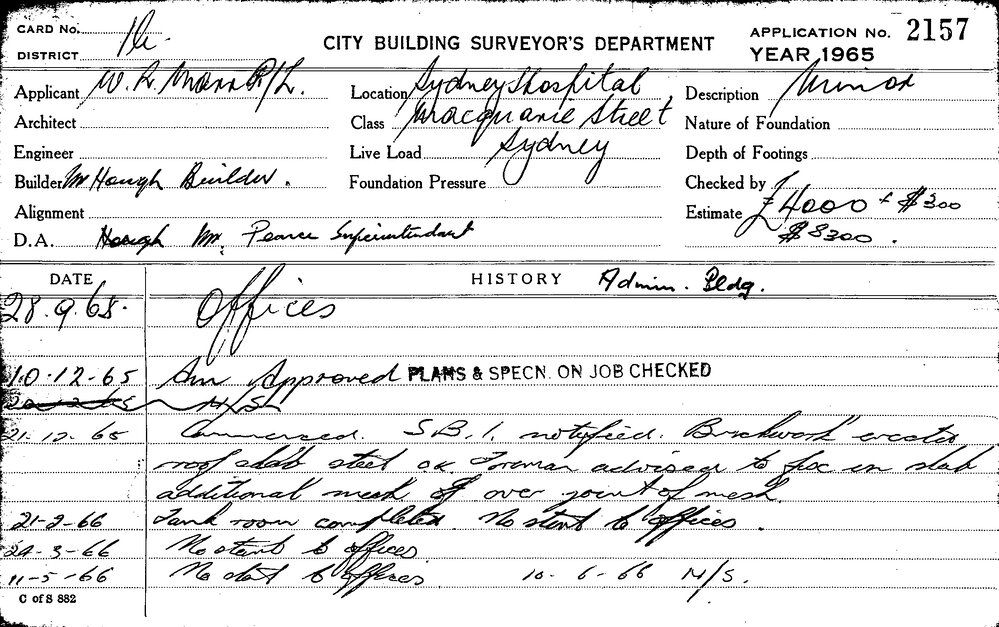 CARD No.
DISTRICT
CITY BUILDING SURVEYOR'S DEPARTMENT
APPLICATION No. 2157
YEAR 1965
Applicant W. R. Mann P/L.
Location Sydney Hospital
Description Minor
Architect
Class Macquarie Street
Nature of Foundation
Engineer
Live Load Sydney
Depth of Footings
Builder Mr Hough Builder.
Foundation Pressure
Checked by
Alignment
Estimate £4000 + $300
D.A. Hough Mr. Pearce Superintendant
$8300.
DATE
HISTORY Admin. Bldg.
28.9.65. Offices
10.12-65 Approved PLANS & SPECN. ON JOB CHECKED
20-12-65 N/S
21.12.65 Commenced. S.B.I. notified. Brickwork erected
roof slab steel ok. Foreman advised to fix in slab
additional mesh over joint of mesh.
21-2-66 Tank room completed. No start to offices.
24-3-66 No start to offices
11-5-66 No start to offices. 10-6-66 N/S.
C of S 882